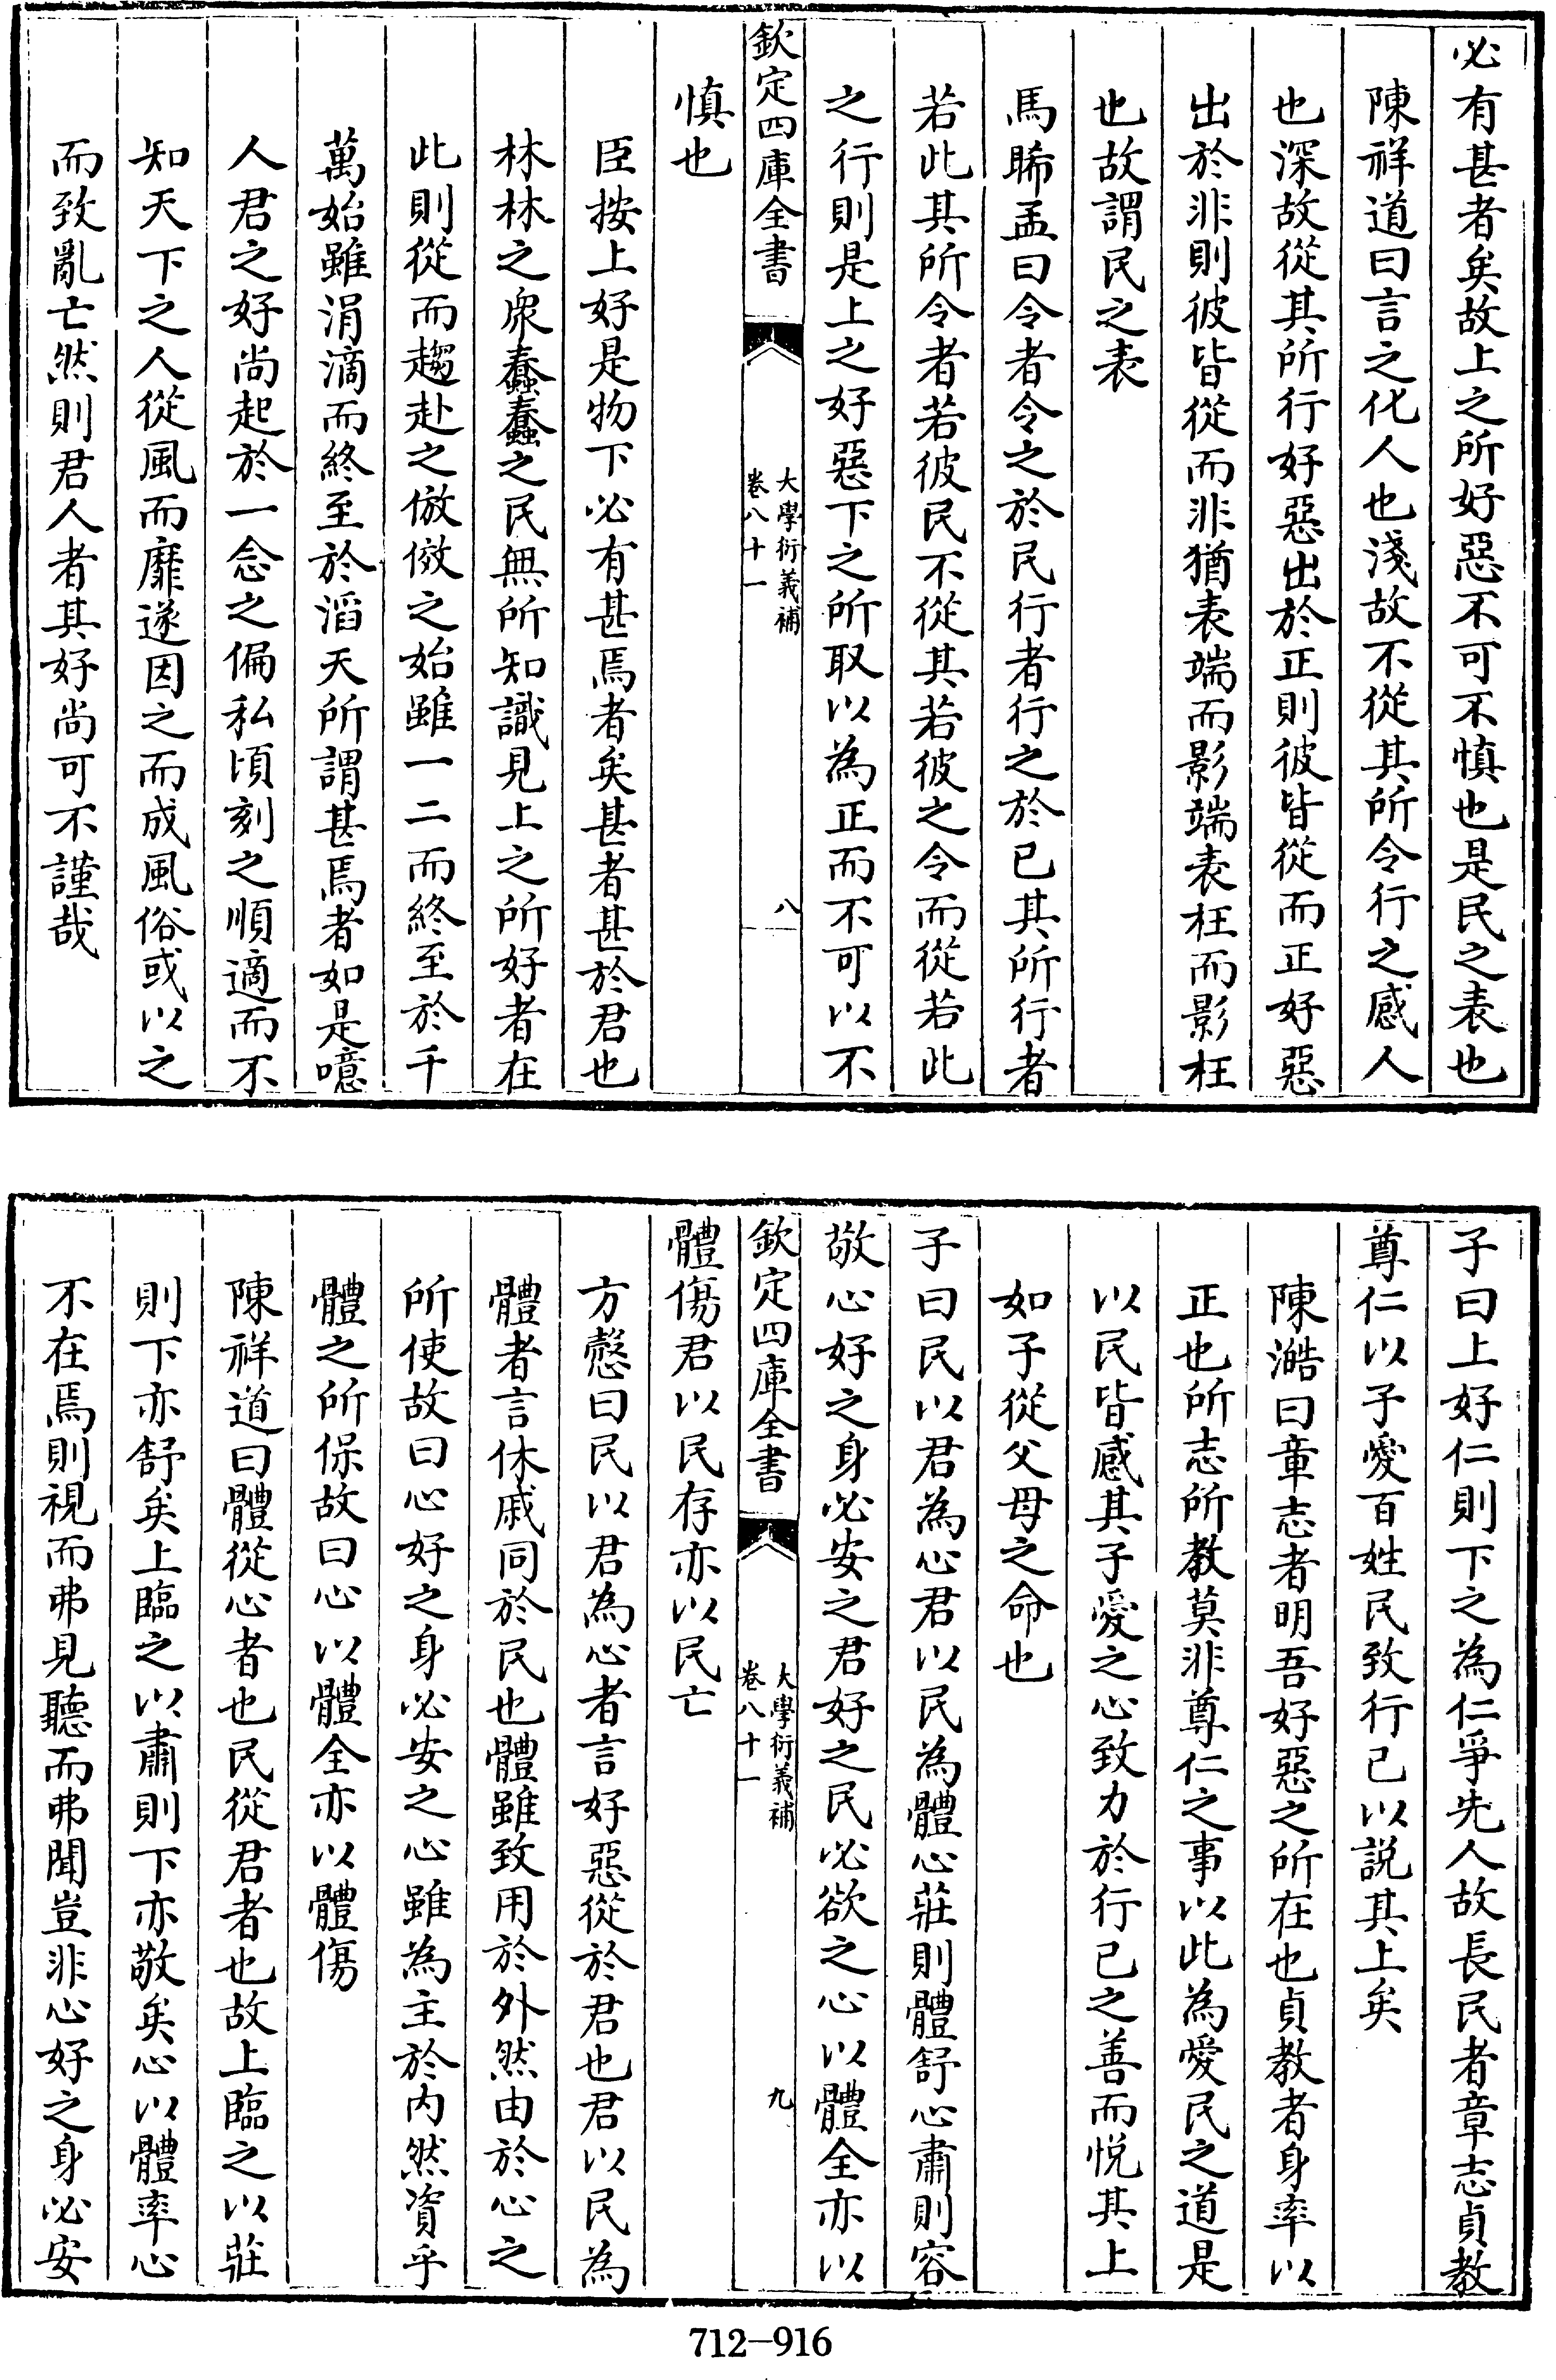 必有甚者矣故上之所好惡不可不慎也是民之表也
陳祥道曰言之化人也淺故不從其所令行之感人
也深故從其所行好惡出於正則彼皆從而正好惡
出於非則彼皆從而非猶表端而影端表枉而影枉
也故謂民之表
馬睎孟曰令者令之於民行者行之於已其所行者
若此其所令者若彼民不從其若彼之令而從若此
之行則是上之好惡下之所取以為正而不可以不
欽定四庫全書
大學衍義補
卷八十一
八
慎也
臣按上好是物下必有甚焉者矣甚者甚於君也
林林之衆蠢蠢之民無所知識見上之所好者在
此則從而趨赴之倣傚之始雖一二而終至於千
萬始雖涓滴而終至於滔天所謂甚焉者如是噫
人君之好尚起於一念之偏私頃刻之順適而不
知天下之人從風而靡遂因之而成風俗或以之
而致亂亡然則君人者其好尚可不謹哉
子曰上好仁則下之為仁爭先人故長民者章志貞教
尊仁以子愛百姓民致行已以説其上矣
陳澔曰章志者明吾好惡之所在也貞教者身率以
正也所志所教莫非尊仁之事以此為愛民之道是
以民皆感其子愛之心致力於行已之善而悦其上
如子從父母之命也
子曰民以君為心君以民為體心莊則體舒心肅則容
敬心好之身必安之君好之民必欲之心以體全亦以
欽定四庫全書
大學衍義補
卷八十一
九
體傷君以民存亦以民亡
方慤曰民以君為心者言好惡從於君也君以民為
體者言休戚同於民也體雖致用於外然由於心之
所使故曰心好之身必安之心雖為主於内然資乎
體之所保故曰心以體全亦以體傷
陳祥道曰體從心者也民從君者也故上臨之以莊
則下亦舒矣上臨之以肅則下亦敬矣心以體率心
不在焉則視而弗見聽而弗聞豈非心好之身必安
712-916